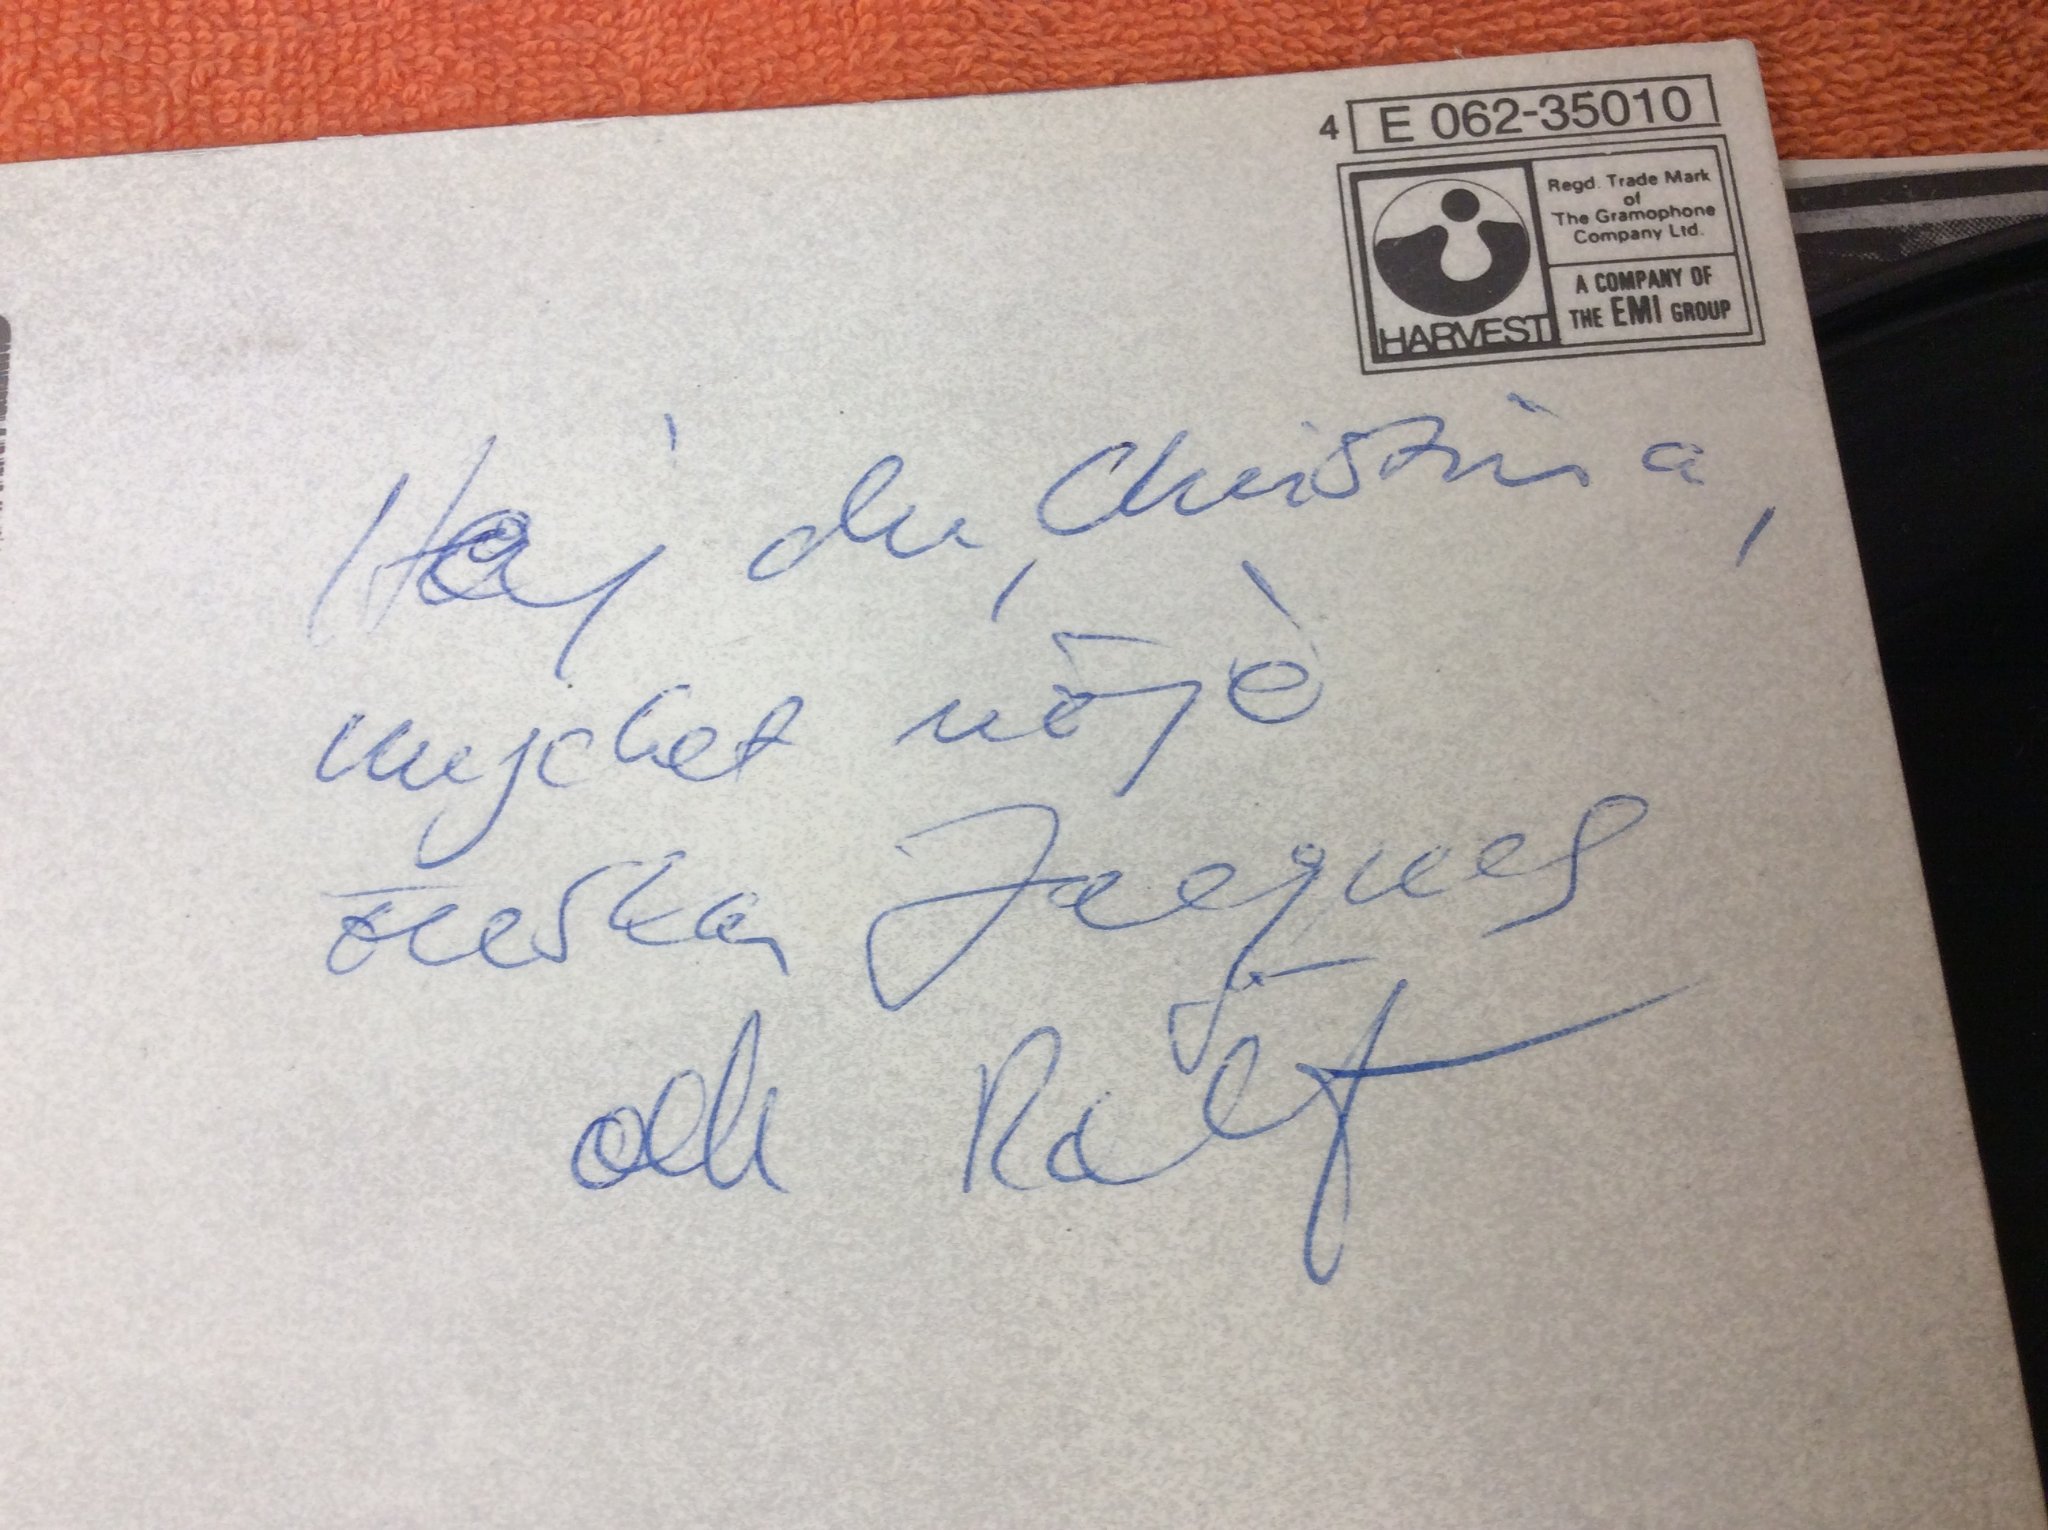 4 E 062-35010
Regd. Trade Mark
of
The Gramophone
Company Ltd.
HARVEST
A COMPANY OF
THE EMI GROUP
Hej du, Christina,
mycket nöje
önskar Jacques
och Ralf